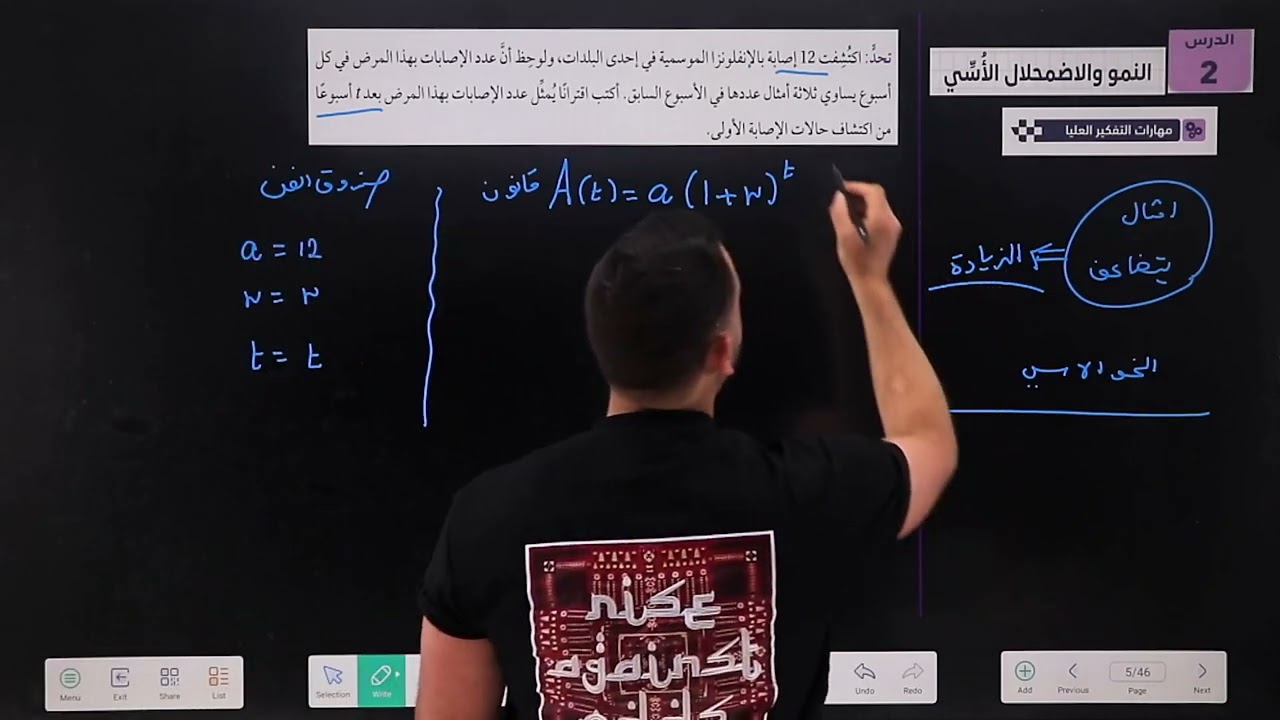 الدرس
2
النمو والاضمحلال الأُسِّي
مهارات التفكير العليا
تحدٍّ: اكتُشِفت 12 إصابة بالإنفلونزا الموسمية في إحدى البلدات، ولوحِظ أنَّ عدد الإصابات بهذا المرض في كل
أسبوع يساوي ثلاثة أمثال عددها في الأسبوع السابق. أكتب اقترانًا يُمثِّل عدد الإصابات بهذا المرض بعد t أسبوعًا
من اكتشاف حالات الإصابة الأولى.
امثال
يتضاعف
⇐ الزيادة
النمو الاسي
قانون A(t) = a (1+r)^t
صندوق الفن
a = 12
r = r
t = t
rise
against
odds
Menu
Exit
Share
List
Selection
Write
Undo
Redo
Add
Previous
5/46
Page
Next